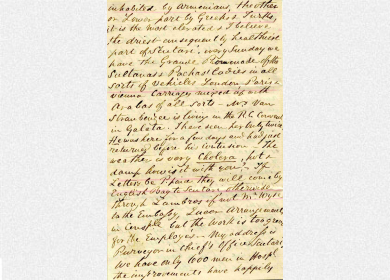 inhabited by Armenians, the other
or Lower part by Greeks & Turks,
it is the most elevated & I believe
the driest consequently healthiest
part of Scutari, every Sunday we
have the Grande Promenade of the
Sultanas & Pachas Ladies in all
sorts of vehicles London Paris &
Vienna Carriages mixed up with
Arabas of all sorts – Mr Van
is living in the R.C. Convent
in Galata. I have seen her but twice
He was here for a few days and had just
returned before the . The
weather is very Cholera, hot &
damp how is it with you – If
Letters be Ppaid they will come by
English Bag to Scutari, otherwise
through Lambros if not Mr Wyse
to the Embassy,
in Consple but the Work is too great
for the Employes – My address is
Purveyor in Chiefs Office Scutari
We have only 600 men in Hospl
the improvements have happily